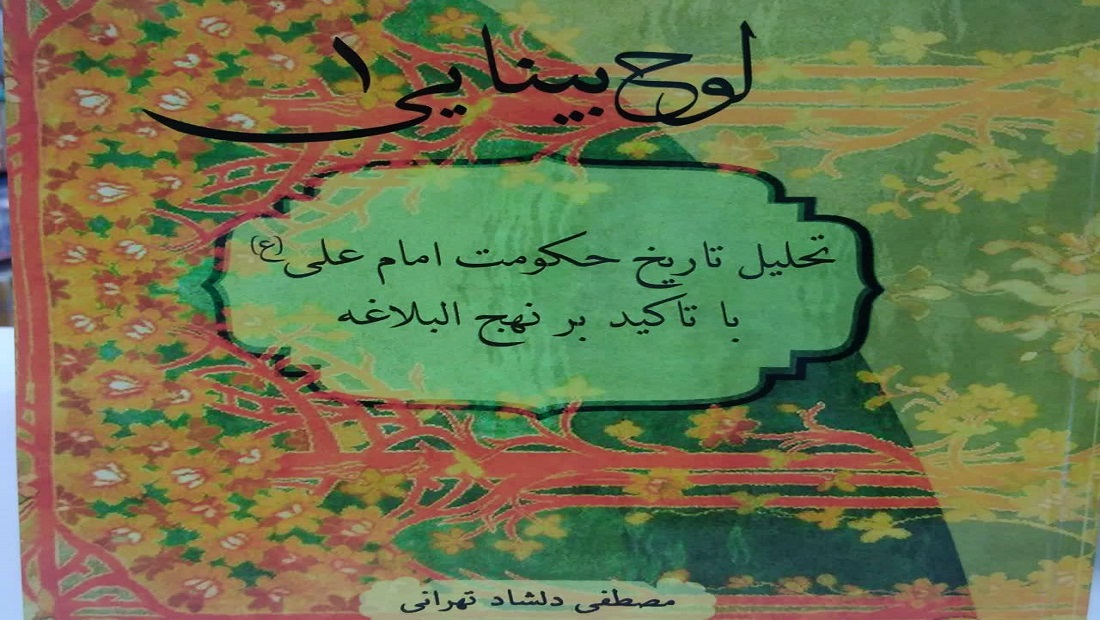 لوح بینایی ۱
تحلیل تاریخ حکومت امام علی(ع)
با تاکید بر نهج البلاغه
مصطفی دلشاد تهرانی